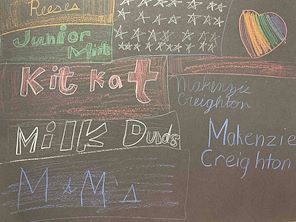 Reeses
Junior
Mint
Kit Kat
Makenzie
Creighton
Milk Duds
Makenzie
Creighton
M&M's